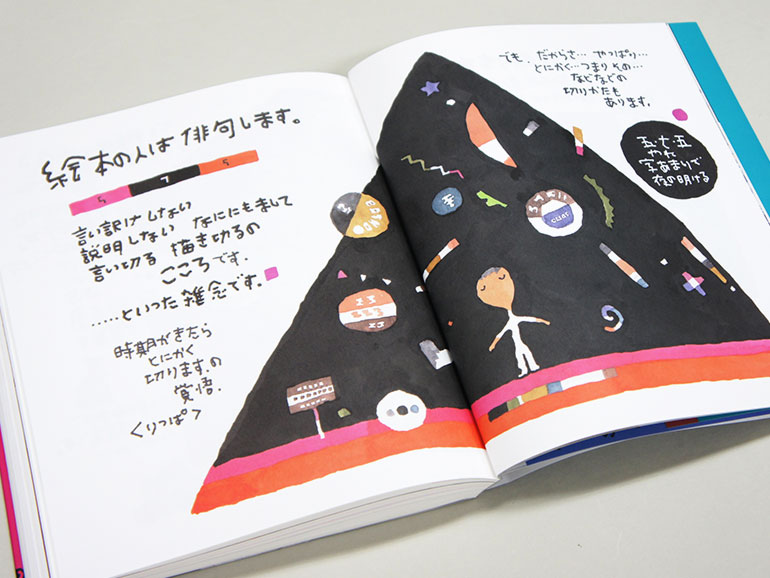 絵本の人は俳句します。
5 7 5
言い訳はしない
説明しない なににもまして
言い切る 描き切るの
こころです.
……といった雑念です。
時期がきたら
とにかく
切ります.の
覚悟.
<りっぱ>
でも、だからさ… やっぱり…
とにかく…つまり その…
などなどの
切りかたも
あります.
五・七・五
やれ
字あまりで
夜の明ける